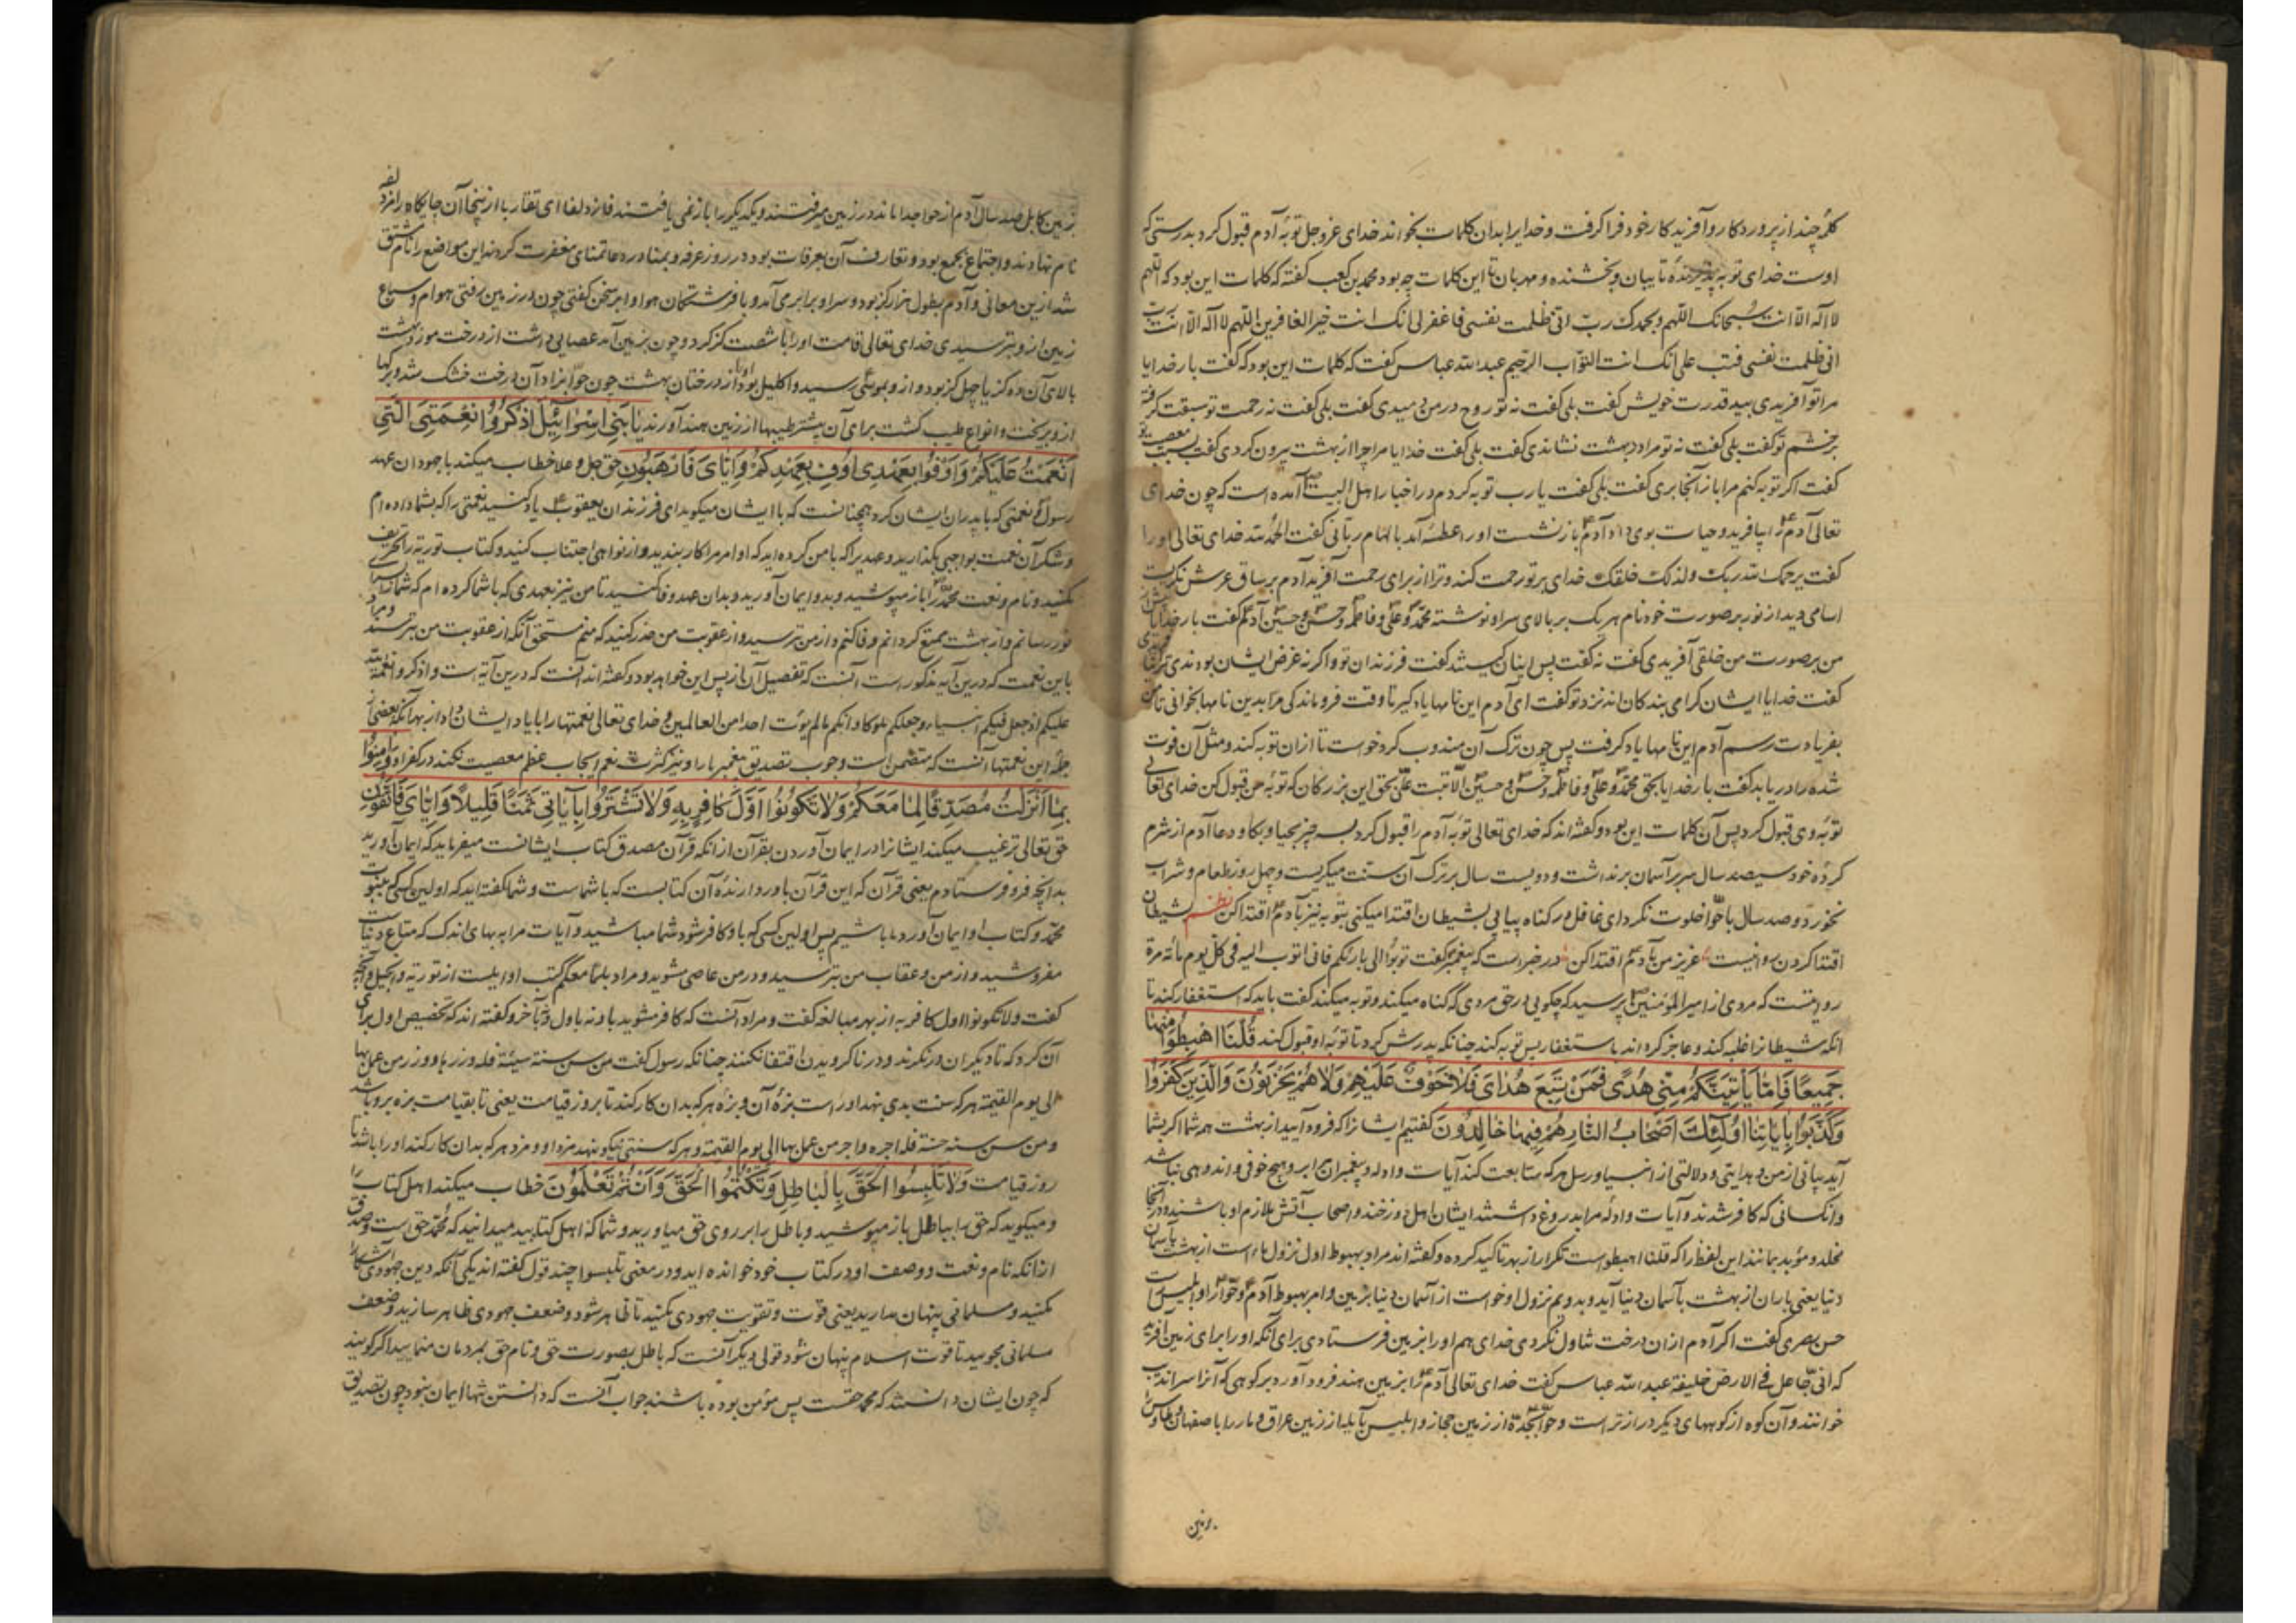 کلمهٔ چند از پروردکار و آفریدکار خود فرا کرفت و خدایرا بدان کلمات بخواند خدای عزوجل توبهٔ آدم قبول کرد بدرستی که
اوست خدای توبه پذیرندهٔ تایبان و بخشنده و مهربان تا این کلمات چه بود محمد بن کعب کفته که کلمات این بود که اللهم
لا اله الا انت سبحانک اللهم و بحمدک رب انی ظلمت نفسی فاغفر لی انک انت خیر الغافرین اللهم لا اله الا انت رب
انی ظلمت نفسی فتب علی انک انت التواب الرحیم عبد الله عباس کفت که کلمات این بود که کفت بار خدایا
مرا تو آفریدی بید قدرت خویش کفت بلی کفت نه تو روح در من دمیدی کفت بلی کفت نه رحمت تو سبقت کرفته
بر خشم تو کفت بلی کفت نه تو مرا در بهشت نشاندی کفت بلی کفت خدایا مرا چرا از بهشت بیرون کردی کفت بسبب معصیت
کفت اکر توبه کنم مرا باز آنجا بری کفت بلی کفت یا رب توبه کردم و در اخبار اهل البیت آمده است که چون خدای
تعالی آدم را بیافرید و حیات بوی داد آدم باز نشست او را عطسه آمد بالهام ربانی کفت الحمد لله خدای تعالی او را
کفت یرحمک الله ربک و لذلک خلقک خدای بر تو رحمت کند و ترا از برای رحمت آفرید آدم بر ساق عرش نکریست
اسامی دید از نور بر صورت خود نام هر یک بر بالای سر او نوشته محمد و علی و فاطمه و حسن و حسین آدم کفت بار خدایا پیش
من بر صورت من خلقی آفریدی کفت نه کفت پس اینان کیستند کفت فرزندان تو و اکر نه غرض ایشان بودندی ترا
کفت خدایا ایشان کرامی بندکان اند نزد تو کفت ای آدم این نامها یاد کیر تا وقت فروماندکی مرا بدین نامها بخوانی تا من
بفریادت رسم آدم این نامها یاد کرفت پس چون ترک آن مندوب کرد خواست تا ازان توبه کند و مثل آن فوت
شده را دریابد کفت بار خدایا بحق محمد و علی و فاطمه و حسن و حسین الا تبت علی بحق این بزرکان که توبهٔ من قبول کن خدای تعالی
توبه وی قبول کرد پس آن کلمات این بود و کفته‌اند که خدای تعالی توبهٔ آدم را قبول کرد بسه چیز بحیا و بکا و دعا آدم از شرم
کردهٔ خود سیصد سال سر بر آسمان برنداشت و دویست سال بر ترک آن سنت میکریست و چهل روز طعام و شراب
نخورد و صد سال با حوا خلوت نکرد ای غافل در کناه پیاپی بشیطان اقتدا میکنی بتوبه نیز بآدم اقتدا کن نظم بشیطان
اقتدا کردن روا نیست عزیز من بآدم اقتدا کن در خبر است که پیغمبر کفت توبوا الی بارئکم فانی اتوب الیه فی کل یوم مائة مرة
روایتست که مردی از امیر المؤمنین پرسید که چکویی در حق مردی که کناه میکند و توبه میکند کفت باید که استغفار کند تا
آنکه شیطانرا غلبه کند و عاجز کرداند باستغفار پس توبه کند چنانکه پدرش کرد تا توبهٔ او قبول کند قُلْنَا اهْبِطُوا مِنْهَا
جَمِيعًا فَإِمَّا يَأْتِيَنَّكُمْ مِنِّي هُدًى فَمَنْ تَبِعَ هُدَايَ فَلَا خَوْفٌ عَلَيْهِمْ وَلَا هُمْ يَحْزَنُونَ وَالَّذِينَ كَفَرُوا
وَكَذَّبُوا بِآيَاتِنَا أُولَئِكَ أَصْحَابُ النَّارِ هُمْ فِيهَا خَالِدُونَ کفتیم ایشانرا که فرود آیید از بهشت همه شما اکر بشما
آید بیانی از من و هدایتی و دلالتی از انبیا و رسل هر که متابعت کند آیات و ادله و پیغمبران مرا برو هیچ خوفی و اندوهی نباشد
و انکسانی که کافر شدند و آیات و ادلهٔ مرا بدروغ داشتند ایشان اهل دوزخند و اصحاب آتش ملازم او باشند و در آنجا
مخلد و مؤبد بمانند این لفظ را که قلنا اهبطواست تکرار از بهر تاکید کرده و کفته‌اند مراد بهبوط اول نزول است از بهشت بآسمان
دنیا یعنی باران از بهشت بآسمان دنیا آید و بدوم نزول او خواست از آسمان دنیا بزمین و امر بهبوط آدم و حوا را و ابلیس است
حسن بصری کفت اکر آدم ازان درخت تناول نکردی خدای هم او را بزمین فرستادی برای آنکه او را برای زمین آفرید
که انی جاعل فی الارض خلیفة عبد الله عباس کفت خدای تعالی آدم را بزمین هند فرود آورد بر کوهی که آنرا سراندیب
خوانند و آن کوه از کوههای دیکر درازتر است و حوا بجدة از زمین حجاز و ابلیس بابله از زمین عراق و مار را باصفهان و طاوس
بزمین
بزمین کابل صد سال آدم از حوا جدا ماند در زمین میرفتند و یکدیکر را باز نمی یافتند فازدلفا ای تقاربا از پنجا آن جایکاه را مزدلفه
نام نهادند و اجتماع بجمع بود و تعارف آن بعرفات بود در روز عرفه و بمنا در دعا تمنای مغفرت کردند این مواضع را نام مشتق
شد ازین معانی و آدم بطول هزار کز بود و سر او برابر می آمد و با فرشتکان هوا و ابر سخن کفتی چون در زمین رفتی هوام و سباع
زمین ازو بترسیدی خدای تعالی قامت او را با شصت کز کرد و چون بزمین آمد عصایی داشت از درخت مورد بهشت
بالای آن ده کز یا چهل کز بود و ازو بموسی رسید و اکلیل بود او را از درختان بهشت چون حوا بزاد آن درخت خشک شد و برکها
ازو بریخت و انواع طیب کشت برای آن بیشتر طیبها از زمین هند آورند يَا بَنِي إِسْرَائِيلَ اذْكُرُوا نِعْمَتِيَ الَّتِي
أَنْعَمْتُ عَلَيْكُمْ وَأَوْفُوا بِعَهْدِي أُوفِ بِعَهْدِكُمْ وَإِيَّايَ فَارْهَبُونِ حق جل و علا خطاب میکند با جهودان عهد
رسول و نعمتی که با پدران ایشان کرد همچنانست که با ایشان میکوید ای فرزندان یعقوب یاد کنید نعمتی را که بشما داده ام
و شکر آن نعمت بواجبی بکذارید و عهدیرا که با من کرده اید که اوامر مرا کار بندید و از نواهی اجتناب کنید و کتاب توریة را تحریف
مکنید و نام و نعت محمد را باز مپوشید و بدو ایمان آورید و بدان عهد وفا کنید تا من نیز بعهدی که با شما کرده ام که شما را بسرا
نور رسانم و از بهشت ممتع کردانم وفا کنم و از من بترسید و از عقوبت من حذر کنید که منم مستحق آنکه از عقوبت من بترسند و مراد
باین نعمت که درین آیه مذکور است آنست که تفصیل آن از پس این خواهد بود و کفته‌اند آنست که درین آیه است و اذکروا نعمة الله
علیکم اذ جعل فیکم انبیاء و جعلکم ملوکا و اتیکم ما لم یؤت احدا من العالمین و خدای تعالی نعمتها را با یاد ایشان داد از بهر آنکه بعضی از
جملهٔ این نعمتها آنست که متضمن است وجوب تصدیق پیغمبر ما را و نیز کثرت نعم ایجاب عظم معصیت کند در کفر او وَآمِنُوا
بِمَا أَنْزَلْتُ مُصَدِّقًا لِمَا مَعَكُمْ وَلَا تَكُونُوا أَوَّلَ كَافِرٍ بِهِ وَلَا تَشْتَرُوا بِآيَاتِي ثَمَنًا قَلِيلًا وَإِيَّايَ فَاتَّقُونِ
حق تعالی ترغیب میکند ایشانرا در ایمان آوردن بقرآن از انکه قرآن مصدق کتاب ایشانست میفرماید که ایمان آورید
بدانچه فرو فرستادم یعنی قرآن که این قرآن باور دارندهٔ آن کتابست که با شماست و شما کفته اید که اولین کسی که بنبوت
محمد و کتاب او ایمان آورد ما باشیم پس اولین کسی که باو کافر شود شما مباشید و آیات مرا به بهای اندک که متاع دنیاست
مفروشید و از من و عقاب من بترسید و در من عاصی مشوید و مراد بلما معکم کتب اوایلست از توریة و انجیل و آنچه
کفت و لا تکونوا اول کافر به از بهر مبالغه کفت و مراد آنست که کافر مشوید باو نه باول و نه بآخر و کفته اند که تخصیص اول برای
آن کرد که تا دیکران در نکرند و در ناکرویدن اقتفا نکنند چنانکه رسول کفت من سن سنة سیئة فله وزرها و وزر من عمل بها
الی یوم القیمة هر که سنت بدی بنهد او راست بزهٔ آن و بزهٔ هر که بدان کار کند تا بروز قیامت یعنی تا بقیامت بزه برو باشد
و من سن سنة حسنة فله اجره و اجر من عمل بها الی یوم القیمة و هر که سنتی نیکو بنهد مزد او و مزد هر که بدان کار کند او را باشد تا
روز قیامت وَلَا تَلْبِسُوا الْحَقَّ بِالْبَاطِلِ وَتَكْتُمُوا الْحَقَّ وَأَنْتُمْ تَعْلَمُونَ خطاب میکند اهل کتاب را
و میکوید که حق را بباطل باز مپوشید و باطل را بر روی حق میاورید و شما که اهل کتابید میدانید که محمد حق است و صدق
از انکه نام و نعت و وصف او در کتاب خود خوانده اید و در معنی تلبسوا چند قول کفته اند یکی آنکه دین جهودی آشکارا
مکنید و مسلمانی پنهان مدارید یعنی قوت و تقویت جهودی مکنید تا ظاهر شود و ضعف جهودی ظاهر سازید و ضعف
مسلمانی مجویید تا قوت اسلام پنهان شود قولی دیکر آنست که باطل بصورت حق و نام حق بمردمان منمایید اکر کویند
که چون ایشان دانستند که محمد حقست پس مؤمن بوده باشند جواب آنست که دانستن تنها ایمان نبود چون تصدیق